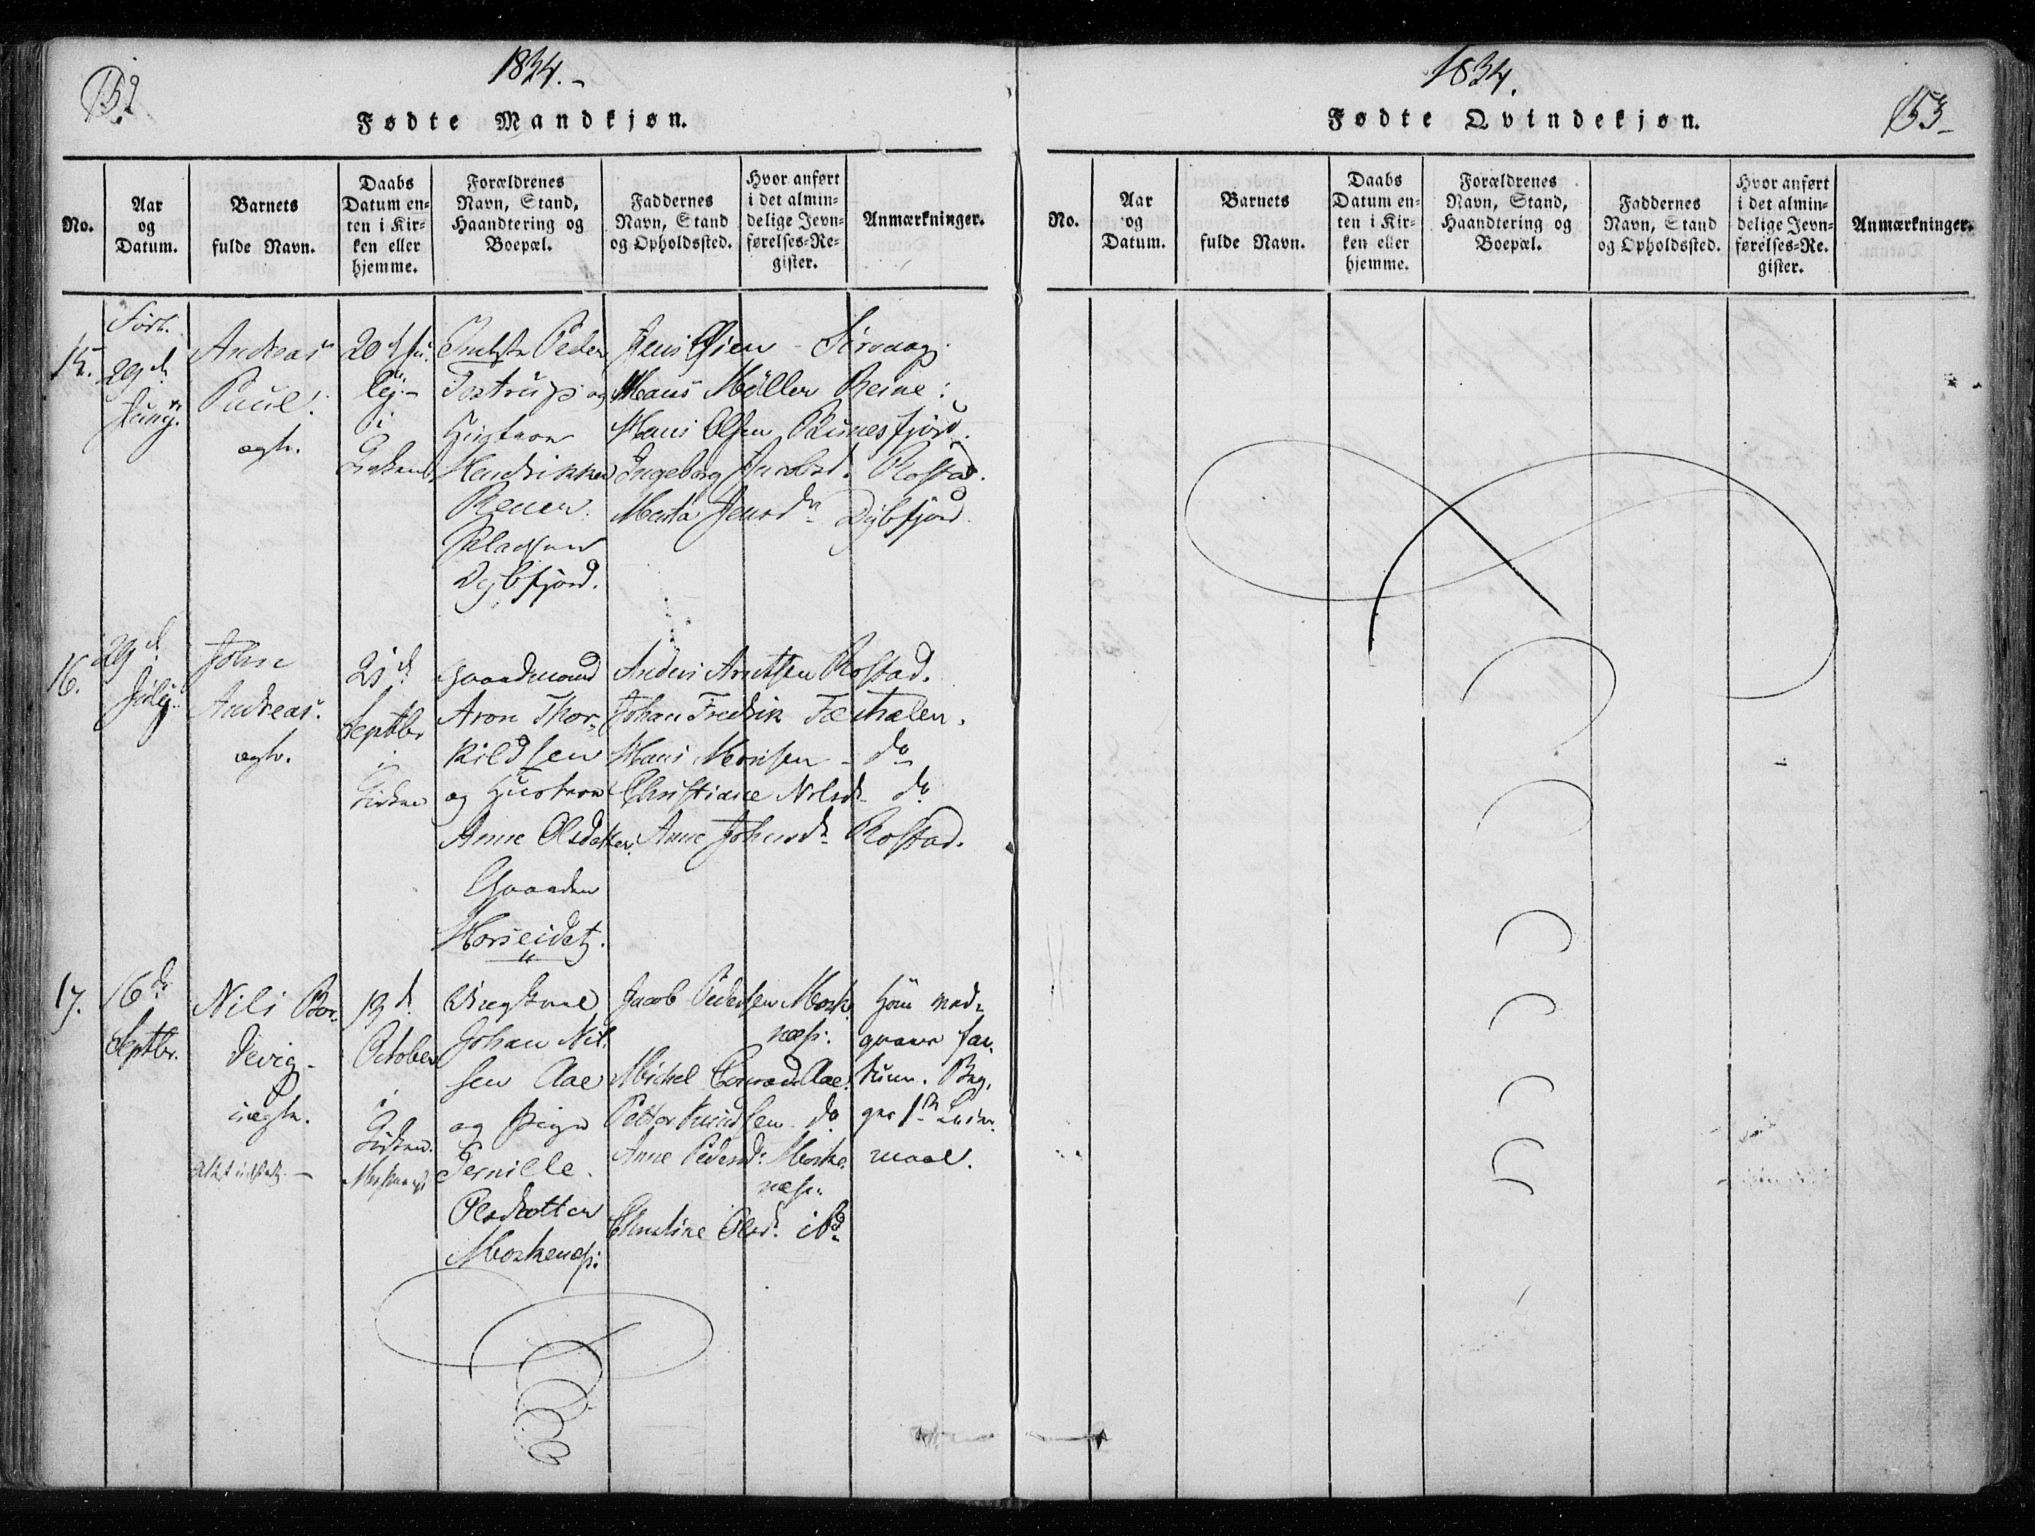 152
1834.-
Fødte Mandkjøn.
No.
Aar
og
Datum.
Barnets
fulde Navn.
Daabs
Datum en-
ten i Kir-
ken eller
hjemme.
Forældrenes
Navn, Stand,
Haandtering og
Boepæl.
Faddernes
Navn, Stand
og Opholdssted.
Hvor anført
i det almin-
delige Jevn-
førelses-Re-
gister.
Anmærkninger.
15.
Født.
29d
Juny.
Andreas
Paul.
ægte.
20d Ju-
ly-
i
Kirken
Peder
Tostrup og
Hustroe
Hendrikke
Pladsen
Dybfjord.
Jens Olsen - Sörvaag.
Hans Möller Reine:
Hans Olsen Kunesfjord.
Ingeborg Jacobsd. Rostad.
Marta Jensdr Dybfjord.
16.
29d
July.
John
Andreas.
ægte.
21d
Septbr
i
Kirken
Gaardmand
Aron Thor-
kildsen
og Hustroe
Anne Olsdatter.
Gaarden
Horseidet.
Anders Arntsen Rostad.
Johan Fredrik
Hans Monsen - do
Christiane Nilsd- do
Anne Johnsdr Rostad.
17.
16de
Septbr.
Nils Bor-
devig-
uægte.
19d
October
i
Kirken.
Moskenæs
Ungkarl
Johan Nil-
sen Aae
og Pige
Pernille
Olsdatter
Moskenæs:
Jacob Pedersen Mosk-
næs:
Michel Conrad Aae.
Petter Knudsen - do
Anne Pedersdr Moske-
næs:
Christine Olsdr ibd
maal.
1834.
Fødte Qvindekjøn.
153-
No.
Aar
og
Datum.
Barnets
fulde Navn.
Daabs
Datum en-
ten i Kir-
ken eller
hjemme.
Forældrenes
Navn, Stand,
Haandtering og
Boepæl.
Faddernes
Navn, Stand
og Opholdssted.
Hvor anført
i det almin-
delige Jevn-
førelses-Re-
gister.
Anmærkninger.